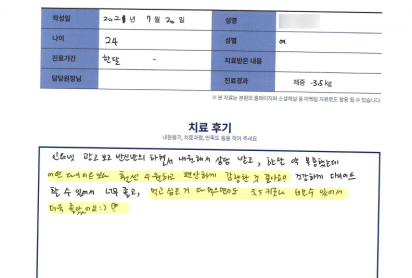 작성일 2021년 7월 20일 성명
나이 24 성별 여
진료기간 한달 - 치료받은 내용
담당원장님 진료경과 체중 -3.5kg
※ 본 자료는 본원의 홈페이지와 소셜채널 등 마케팅 자료로도 활용 될 수 있습니다.
치료 후기
내원동기, 치료과정, 만족도 등을 적어 주세요
인터넷 광고 보고 반신반의 하면서 내원해서 상담 받고, 한달 약 복용했는데
어떤 다이어트보다 훨씬 수월하고 편안하게 감량한 것 같아요! 건강하게 다이어트
할 수 있어서 너무 좋고, 먹고 싶은거 다 먹으면서도 3.5키로나 뺄 수 있어서
더욱 좋았어요 :)